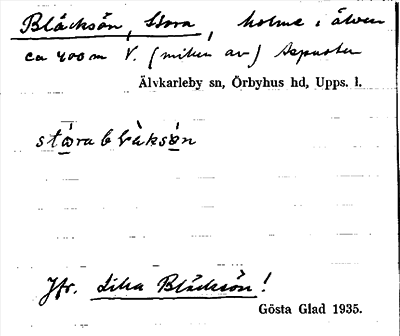 Bläcksön, Stora, holme i älven
ca 400 m V. (mitten av) Aspnäsen
Älvkarleby sn, Örbyhus hd, Upps. l.
stòra blǜksön
Jfr. Lilla Bläcksön!
Gösta Glad 1935.